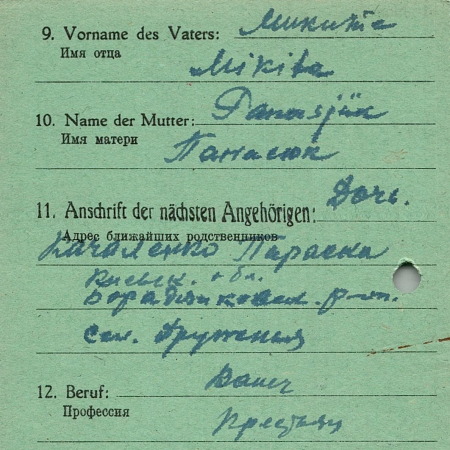 9. Vorname des Vaters: Микита
Имя отца
Mikita
10. Name der Mutter: Panasjük
Имя матери
Панасюк
11. Anschrift der nächsten Angehörigen: Дочь.
Адрес ближайших родственников
Параска
Киевск. обл.
р-он.
сел. Дружня
12. Beruf: Bauer
Профессия